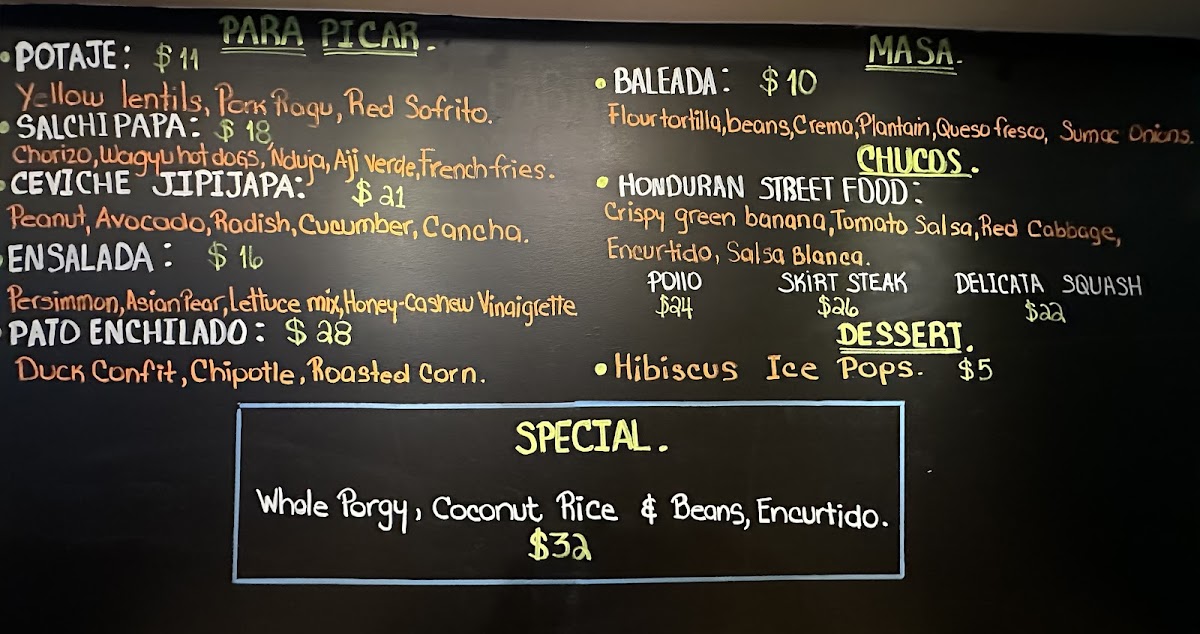 PARA PICAR.
• POTAJE: $11
Yellow lentils, Pork Ragu, Red Sofrito.
• SALCHIPAPA: $18
Chorizo, Wagyu hot dogs, Nduja, Aji verde, French fries.
• CEVICHE JIPIJAPA: $21
Peanut, Avocado, Radish, Cucumber, Cancha.
• ENSALADA: $16
Persimmon, Asian Pear, Lettuce mix, Honey-Cashew Vinaigrette
• PATO ENCHILADO: $28
Duck Confit, Chipotle, Roasted Corn.
MASA.
• BALEADA: $10
Flour tortilla, beans, Crema, Plantain, Queso fresco, Sumac Onions.
CHUCOS.
• HONDURAN STREET FOOD:
Crispy green banana, Tomato Salsa, Red Cabbage,
Encurtido, Salsa Blanca.
POllO SKIRT STEAK DELICATA SQUASH
$24 $26 $22
DESSERT.
• Hibiscus Ice Pops. $5
SPECIAL.
Whole Porgy, Coconut Rice & Beans, Encurtido.
$32